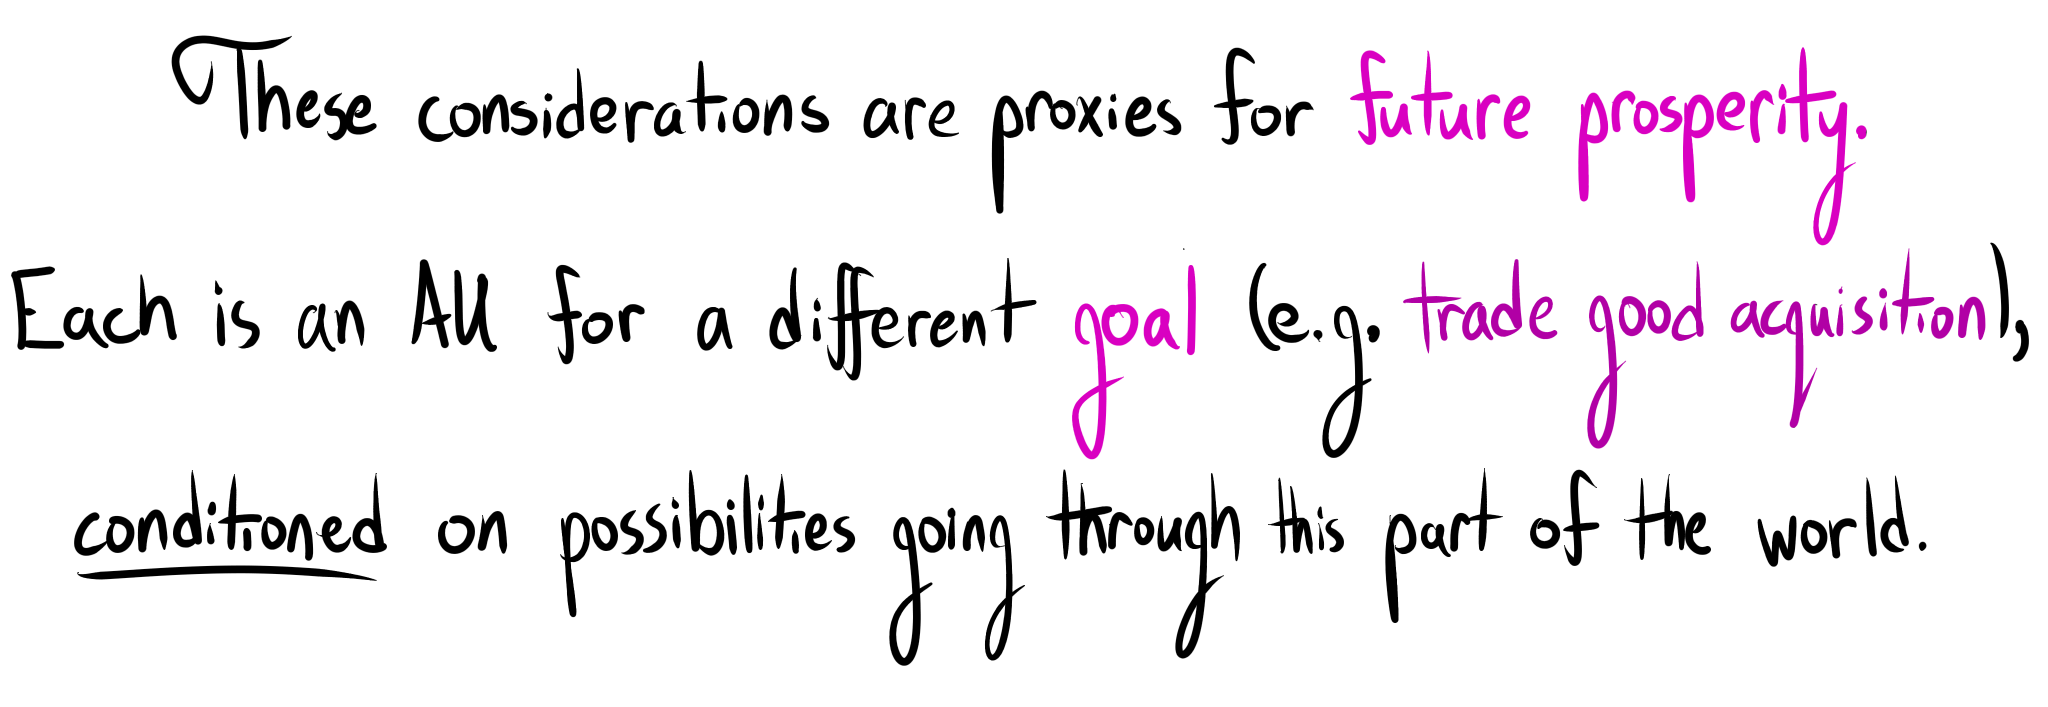 These considerations are proxies for future prosperity.
Each is an AU for a different goal (e.g. trade good acquisition),
conditioned on possibilities going through this part of the world.